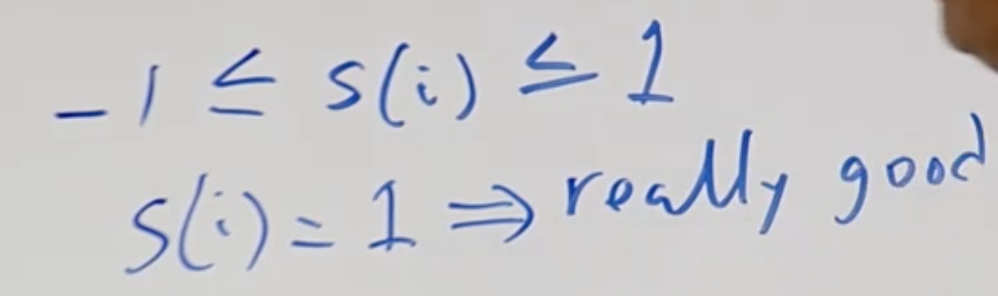 -1 ≤ s(i) ≤ 1
s(i) = 1 ⇒ really good